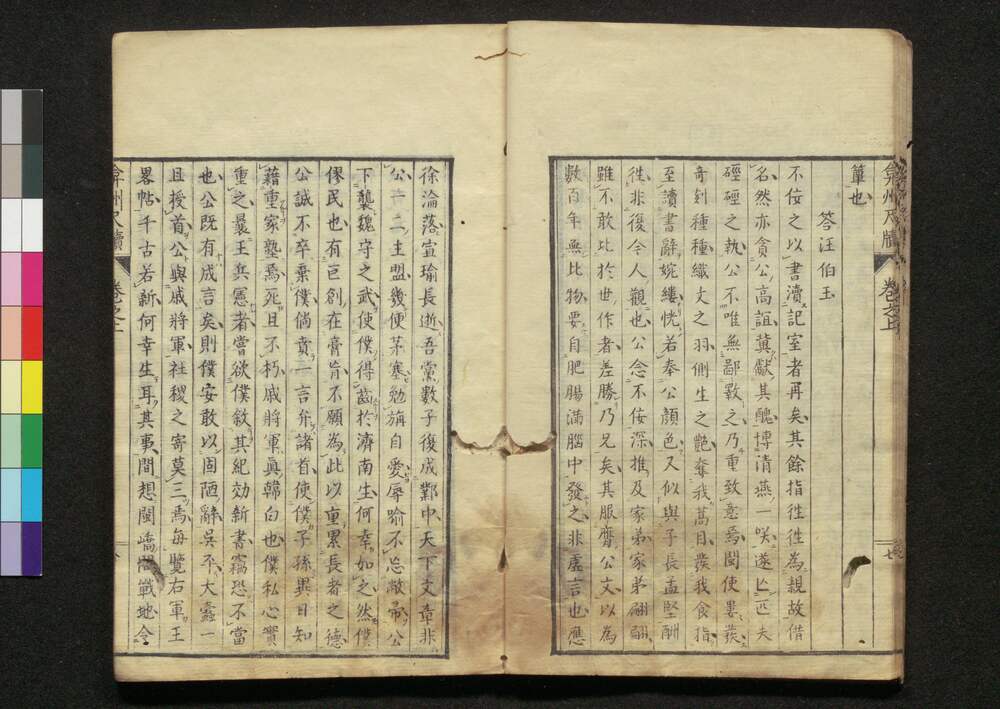 弇州尺牘 卷之上
筆也
答汪伯玉
不佞之以書瀆記室者再矣其餘指徃徃為親故借
名然亦貪公高誼冀獻其醜博清燕一咲遂亡匹夫
硜硜之執公不唯無鄙斁之乃重致意焉閩使婁羨
奇刻種種纖丈之羽側生之艶奪我萬目羨我食指
至讀書辭婉縷恍若奉公顔色又似與子長孟堅酬
徃非復令人觀也公念不佞深推及家弟家弟翩翩
雖不敢比於世作者差勝乃兄矣其服膺公文以為
數百年無比物要自肥腸滿腦中發之非虚言也應
徐淪落宣瑜長逝吾黨數子復成酆中天下文章非
公一二主盟幾便茅塞勉旃自愛辱喻不忘敝帚公
下龔魏守之武使僕得齒於濟南生何幸如之然僕
僇民也有巨創在膏肓不願為此以重累長者之德
公誠不卒棄僕倘賁一言弁諸首使僕子孫異日知
藉重家塾焉死且不朽戚將軍真韓白也僕私心實
重之曩王兵憲者嘗欲僕敘其紀効新書竊恐不當
也公既有成言矣則僕安敢以固陋辭吳不大蠢一
且授首公與戚將軍社稷之寄莫三焉每覽右軍王
畧帖千古若新何幸生耳其事間想閩嶠戰地令
弇州尺牘 卷之上